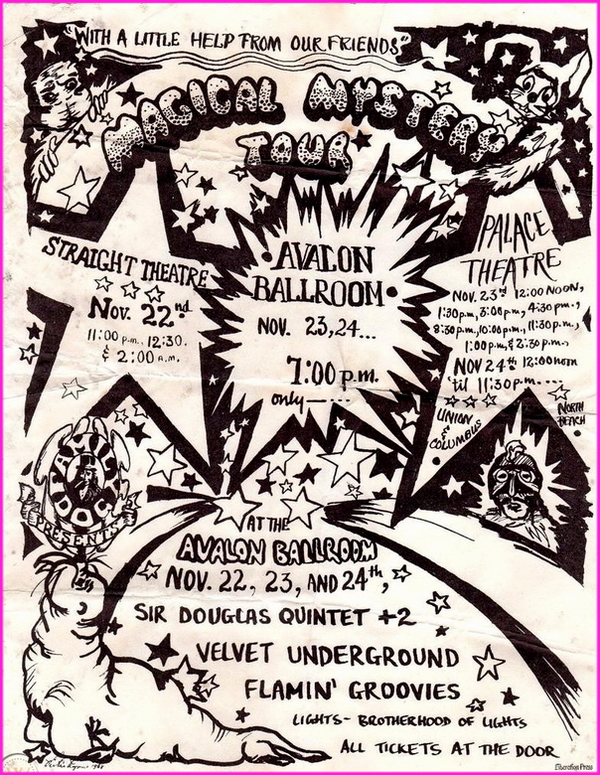 "WITH A LITTLE HELP FROM OUR FRIENDS"
MAGICAL MYSTERY
TOUR
STRAIGHT THEATRE
Nov. 22nd
11:00 p.m. 12:30.
& 2:00 A.M.
AVALON
BALLROOM
NOV. 23, 24...
7:00 p.m.
only
PALACE
THEATRE
NOV. 23rd 12:00 NOON,
1:30 p.m, 3:00 p.m, 4:30 pm.,
8:30 p.m, 10:00 p.m, 11:30 p.m.,
1:00 p.m, & 2:30 p.m..
NOV 24th 12:00 noon
'til 11:30 p.m....
UNION
&
COLUMBUS
NORTH
BEACH
FAMILY
DOG
PRESENTS
AT THE
AVALON BALLROOM
NOV. 22, 23, AND 24th,
SIR DOUGLAS QUINTET +2
VELVET UNDERGROUND
FLAMIN' GROOVIES
LIGHTS - BROTHERHOOD OF LIGHTS
ALL TICKETS AT THE DOOR
Liberation Press